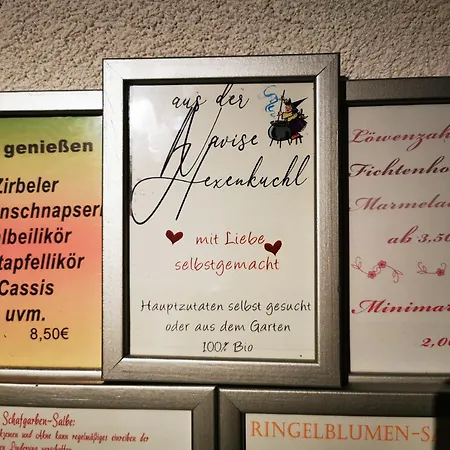 genießen
Zirbeler
nschnapserl
lbeilikör
tapfellikör
Cassis
uvm.
8,50€
aus der
Hexenkuchl
mit Liebe
selbstgemacht
Hauptzutaten selbst gesucht
oder aus dem Garten
100% Bio
Löwenzah
Fichtenho
Marmelad
ab 3,50
Minimar
2,00
Schafgarben-Salbe:
kann regelmäßiges einreiben der
RINGELBLUMEN-SA